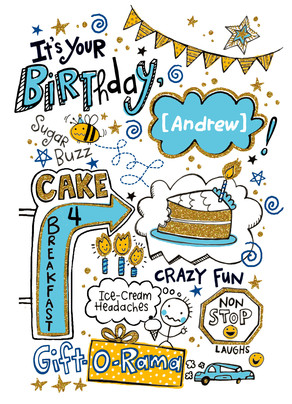 It's your
BiRthday,
[Andrew]!
Sugar
Buzz
CAKE
4
BREAKFAST
CRAZY FUN
Ice-Cream
Headaches
NON
STOP
LAUGHS
Gift-O-Rama